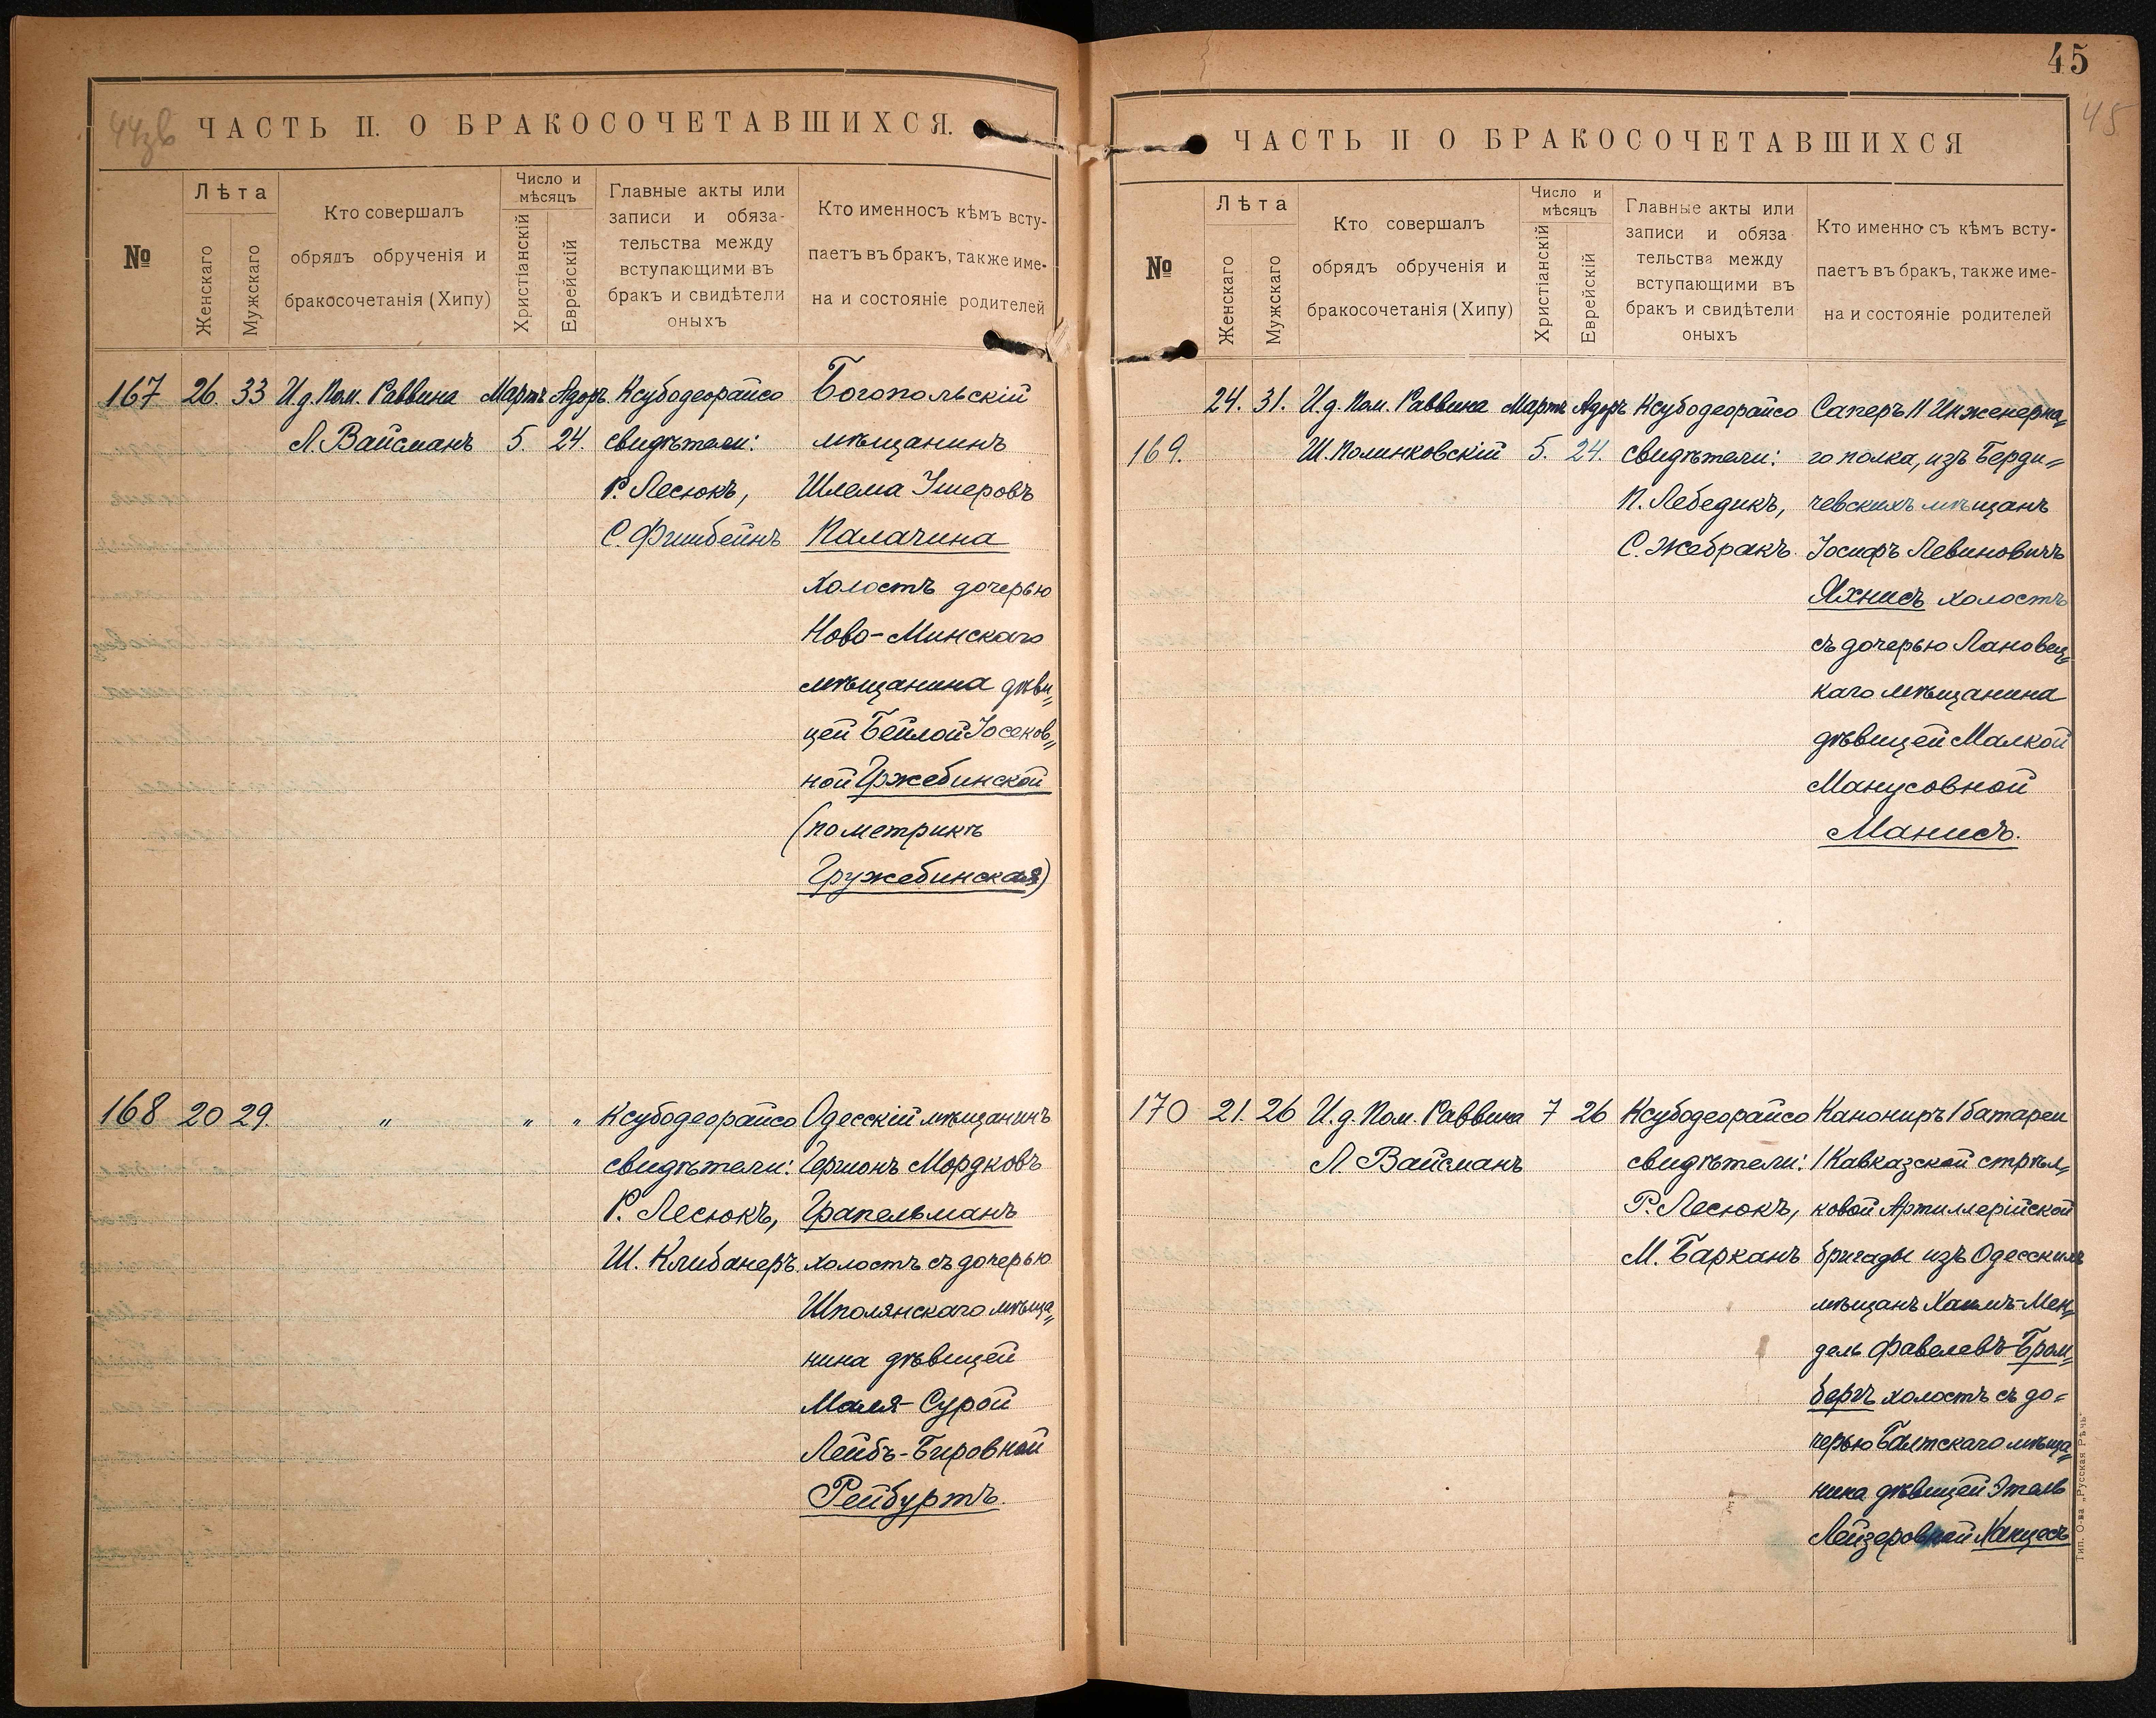 44зв
ЧАСТЬ II. О БРАКОСОЧЕТАВШИХСЯ.
№
Лѣта
Женскаго
Мужскаго
Кто совершалъ
обрядъ обрученія и
бракосочетанія (Хипу)
Число и
мѣсяцъ
Христіанскій
Еврейскій
Главные акты или
записи и обяза-
тельства между
вступающими въ
бракъ и свидѣтели
оныхъ
Кто именно съ кѣмъ всту-
паетъ въ бракъ, также име-
на и состояніе родителей
167 26. 33 И.д. Пом. Раввина Мартъ Адоръ Ксубодеорайсо Богопольскій
Л. Вайсманъ 5. 24. свидѣтели: мѣщанинъ
Р. Лесюкъ, Шлема Ушеровъ
С. Фишбейнъ Палачина
холостъ дочерью
Ново-Минскаго
мѣщанина дѣви„
цей Бейлой Іосеков„
ной Гржебинской
(по метрикѣ
Гружебинская)
168 20 29. „ „ „ Ксубодеорайсо Одесскій мѣщанинъ
свидѣтели: Гершонъ Мордковъ
Р. Лесюкъ, Грапельманъ
Ш. Клибанеръ. холостъ съ дочерью
Шполянскаго мѣща„
нина дѣвицей
Маля-Сурой
Лейбъ-Бировной
Рейбуртъ.
45
45
ЧАСТЬ II О БРАКОСОЧЕТАВШИХСЯ
№
Лѣта
Женскаго
Мужскаго
Кто совершалъ
обрядъ обрученія и
бракосочетанія (Хипу)
Число и
мѣсяцъ
Христіанскій
Еврейскій
Главные акты или
записи и обяза
тельства между
вступающими въ
бракъ и свидѣтели
оныхъ
Кто именно съ кѣмъ всту-
паетъ въ бракъ, также име-
на и состояніе родителей
24. 31. И.д. Пом. Раввина Мартъ Адоръ Ксубодеорайсо Саперъ 11 Инженерна„
169. Ш. Полинковскій 5. 24. свидѣтели: го полка, изъ Берди„
П. Лебедикъ, чевскихъ мѣщанъ
С. Жебракъ. Іосифъ Левиновичъ
Яхнисъ холостъ
съ дочерью Лановец„
каго мѣщанина
дѣвицей Малкой
Манусовной
Манисъ.
170 21. 26 И.д. Пом. Раввина 7 26 Ксубодеорайсо Канониръ 1 батареи
Л Вайсманъ свидѣтели: 1 Кавказской стрѣл„
Р. Лесюкъ, ковой Артиллерійской
М. Барканъ бригады изъ Одесскихъ
мѣщанъ Хаимъ-Мен„
дель Фавелевъ Бром„
бергъ холостъ съ до„
черью Балтскаго мѣща„
нина дѣвицей Этель
Лейзеровной Ханцесъ
Тип. О-ва „Русская Рѣчь"